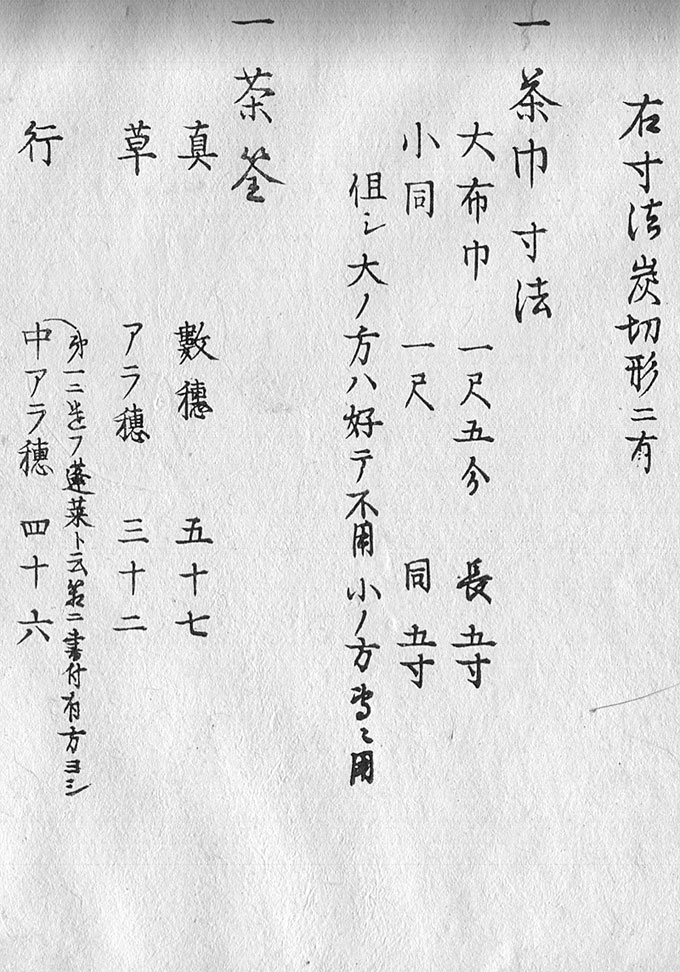 右寸法炭切形ニ有
一茶巾寸法
大布巾 一尺五分 長五寸
小同 一尺 同五寸
但シ大ノ方ハ好テ不用小ノ方専ニ用
一茶筌
真 數穗 五十七
草 アラ穗 三十二
第一ニ造フ蓬莱ト云若ニ書付有方ヨシ
行 中アラ穗 四十六